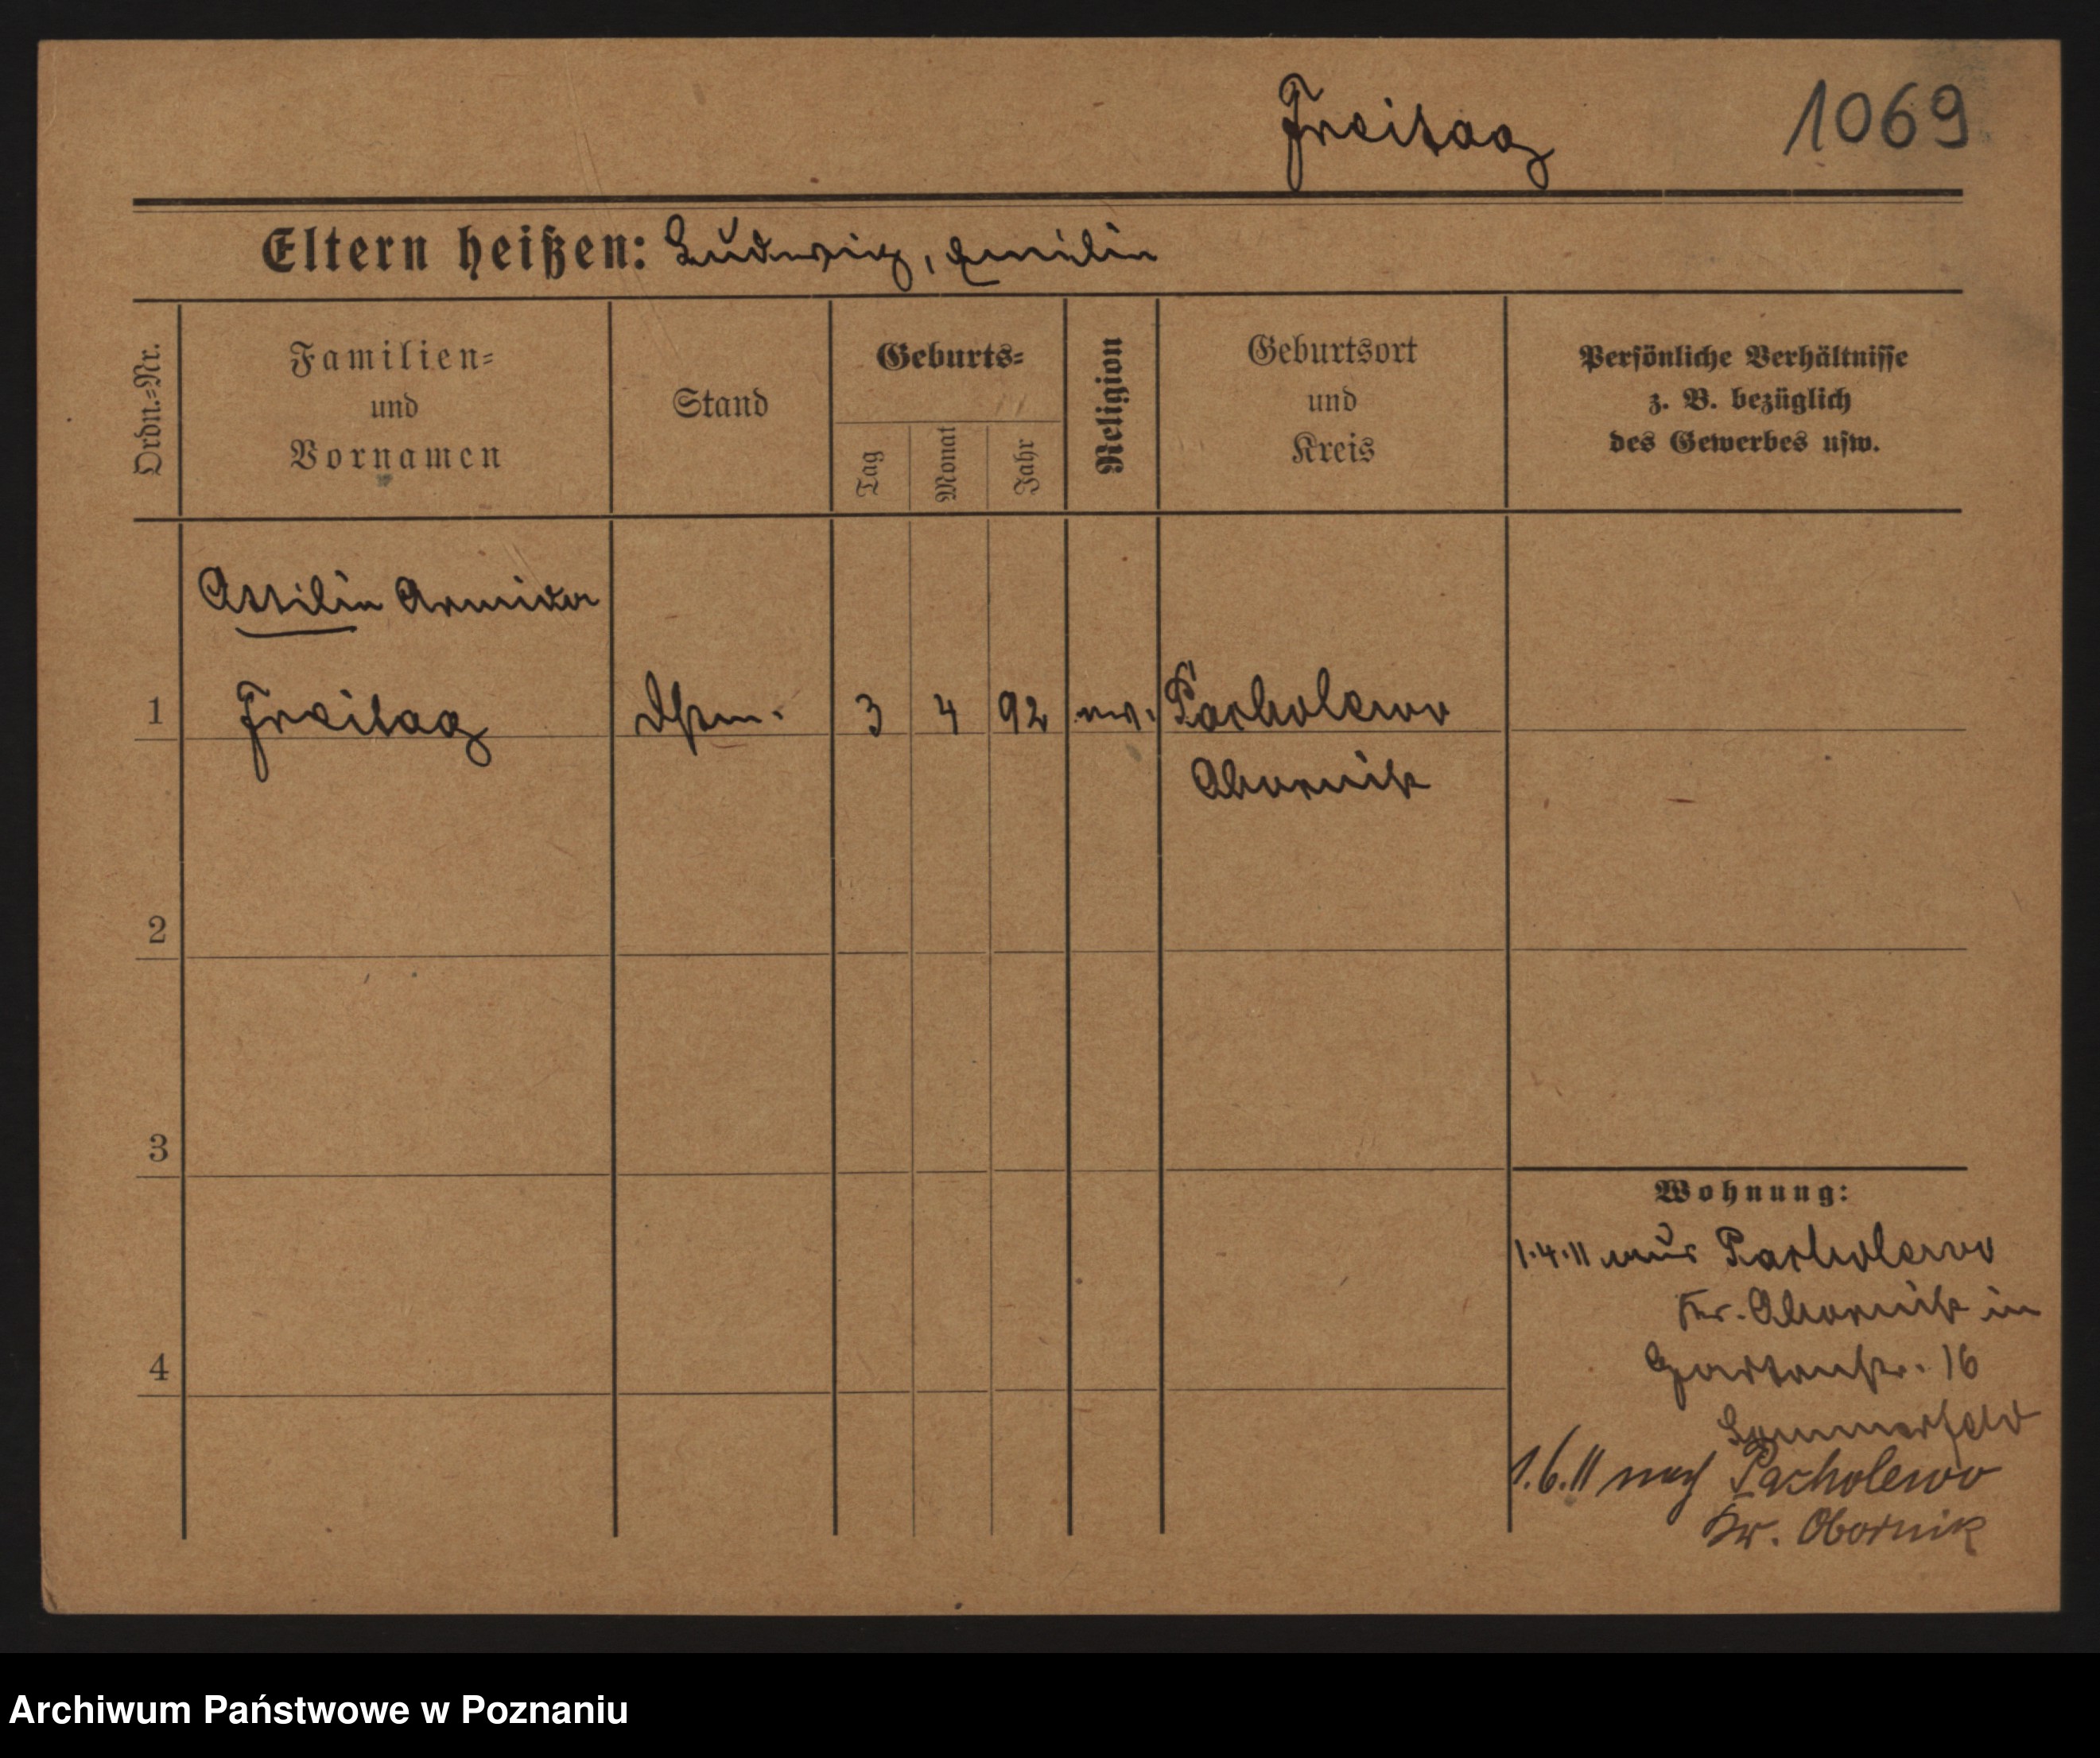 Freitag 1069
Eltern heißen: Ludwig, Emilie
Ordn.=Nr.
Familien=
und
Vornamen
Stand
Geburts=
Tag
Monat
Jahr
Religion
Geburtsort
und
Kreis
Persönliche Verhältnisse
z. B. bezüglich
des Gewerbes usw.
Ottilie
1 Freitag 3 4 92 ev. Pacholewo
Obornik
2
3
4
Wohnung:
1.4.11 aus Pacholewo
Kr. Obornik in
Gartenstr. 16
Sommerfeld
1.6.11 nach Pacholewo
Kr. Obornik
Archiwum Państwowe w Poznaniu